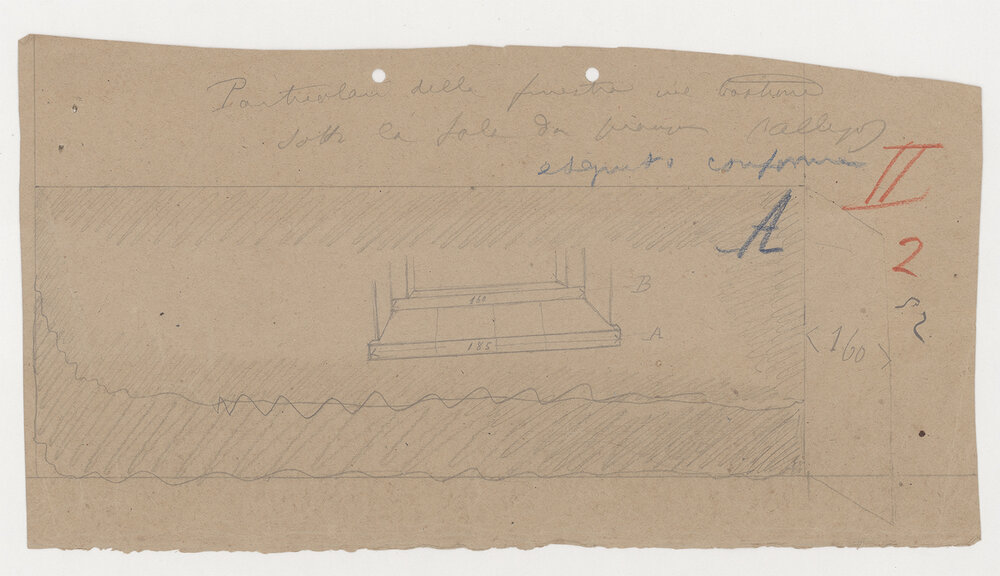 Particolari delle finestre nel bastione
sotto la Sala da pranzo
eseguito conforme
II
A
2
B
160
A
185
160